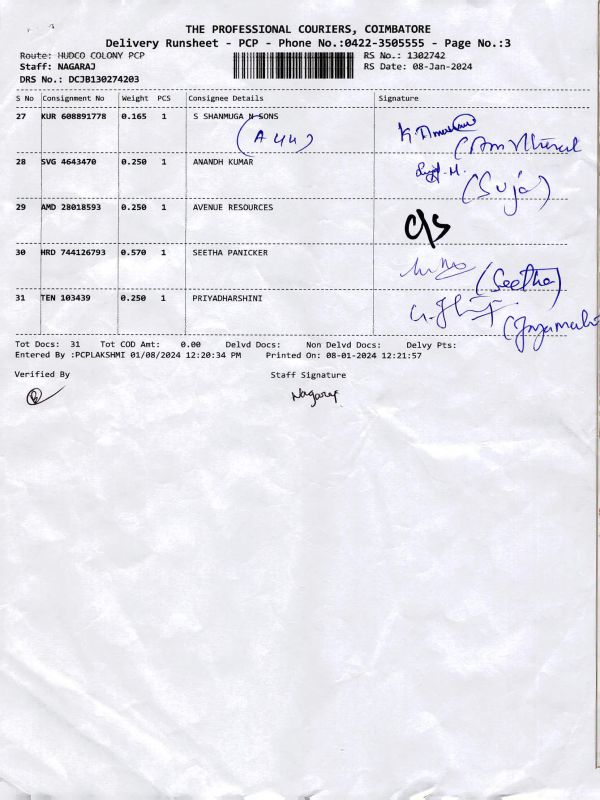 THE PROFESSIONAL COURIERS, COIMBATORE
Delivery Runsheet - PCP - Phone No.:0422-3505555 - Page No.:3
Route: HUDCO COLONY PCP RS No.: 1302742
Staff: NAGARAJ RS Date: 08-Jan-2024
DRS No.: DCJB130274203
S No Consignment No Weight PCS Consignee Details Signature
27 KUR 608891778 0.165 1 S SHANMUGA N SONS
28 SVG 4643470 0.250 1 ANANDH KUMAR
(Suja)
29 AMD 28018593 0.250 1 AVENUE RESOURCES
C/S
30 HRD 744126793 0.570 1 SEETHA PANICKER
(Seetha)
31 TEN 103439 0.250 1 PRIYADHARSHINI
Tot Docs: 31 Tot COD Amt: 0.00 Delvd Docs: Non Delvd Docs: Delvy Pts:
Entered By :PCPLAKSHMI 01/08/2024 12:20:34 PM Printed On: 08-01-2024 12:21:57
Verified By Staff Signature
Nagaraj